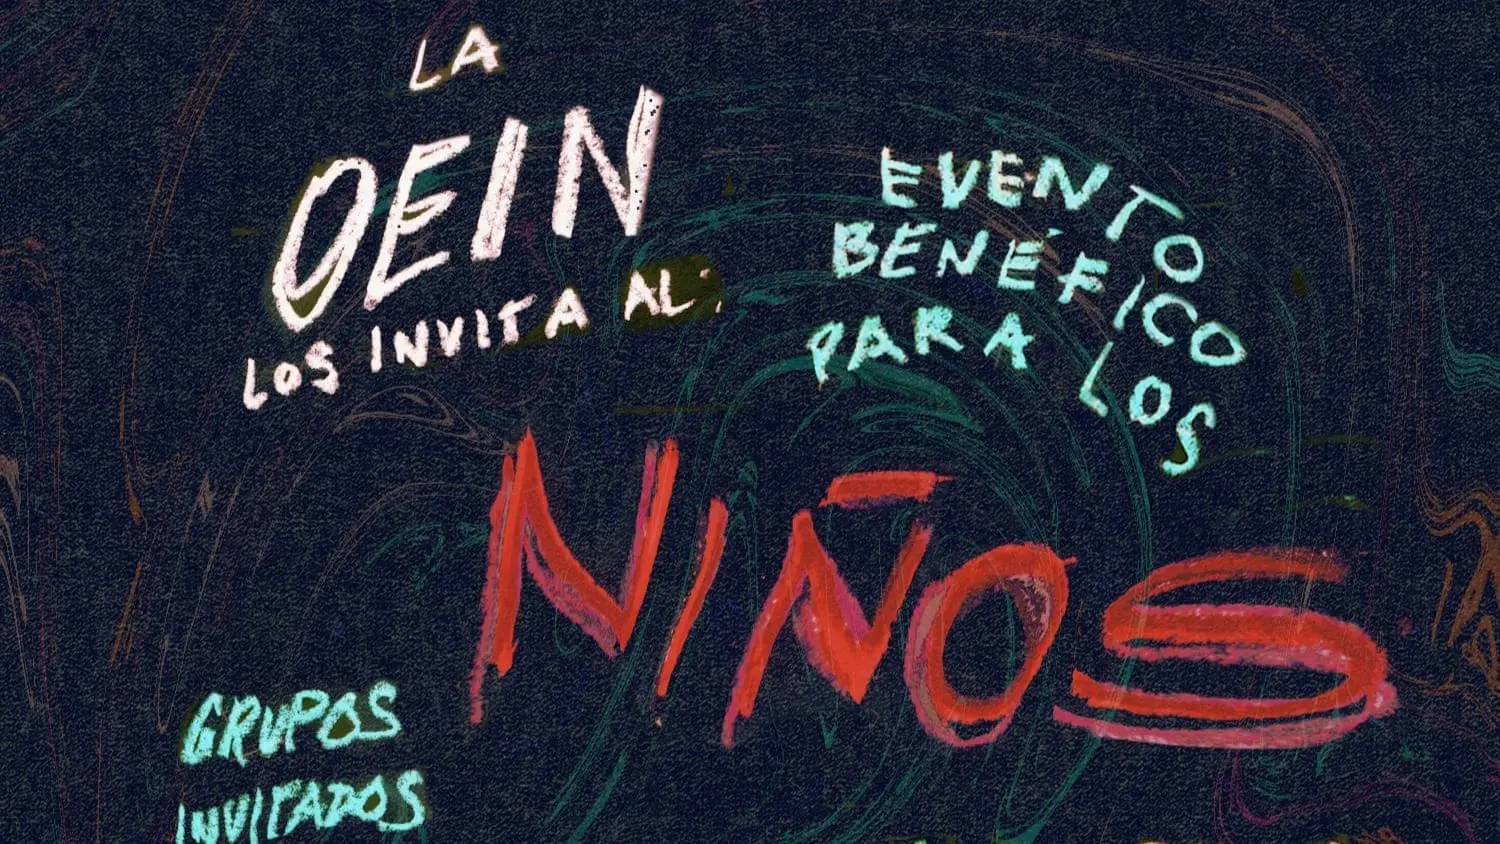 LA
OEIN
LOS INVITA AL:
EVENTO
BENÉFICO
PARA LOS
NIÑOS
GRUPOS
INVITADOS